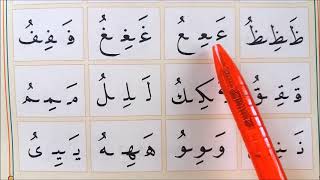 ظَظِظُ عَعِعُ غَغِغُ فَفِفُ
قَقِقُ كِكُ لَلِلُ مَمِمُ
نَنِ وَوِوُ هَهِهُ يَيِيُ